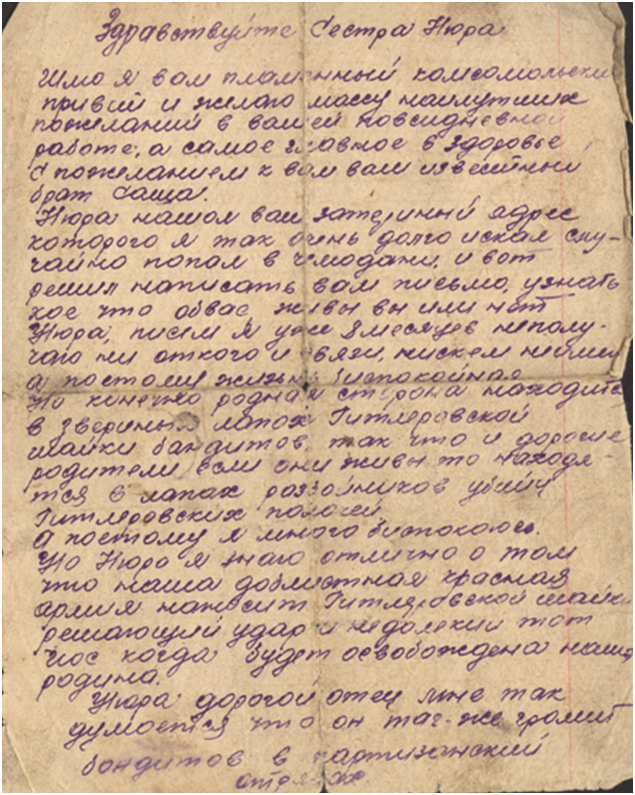 Здравствуйте Сестра Нюра
Шлю я вам пламенный комсомольски
привий и желаю массу наилутших
пожеланий в вашей повсидневной
работе, а самое главное в здоровье
С пожеланием к вам ваш известный
брат Саша.
Нюра нашол ваш затеринный ядрес
которого я так очень долго искал слу-
чайно попол в чмодани, и вот
решил написать вам письмо, узнать
кое что обвас живы вы или нет
Нюра, писем я уже 8 месяцев неполу-
чаю ни откого и связи, нискем неимею
а постому жизнь биспокойная
Но конечно родная сторона находитс
в звериных лапах Гитлеровской
шайки бандитов, так что и дорогие
родители если они живы то находя-
тся в лапах розбойников убийц
Гитлеровских полочей
А постому я много биспокоюсь.
Но Нюра я знаю отлично о том
что наша доблистная красная
армия наносит Гитлеровской шайки
решающий удар и недолекий тот
чос когда будет освобождена наша
родина.
Нюра дорогой отец мне так
думоется что он таг-же громит
бондитов в партизанский
отрядах.